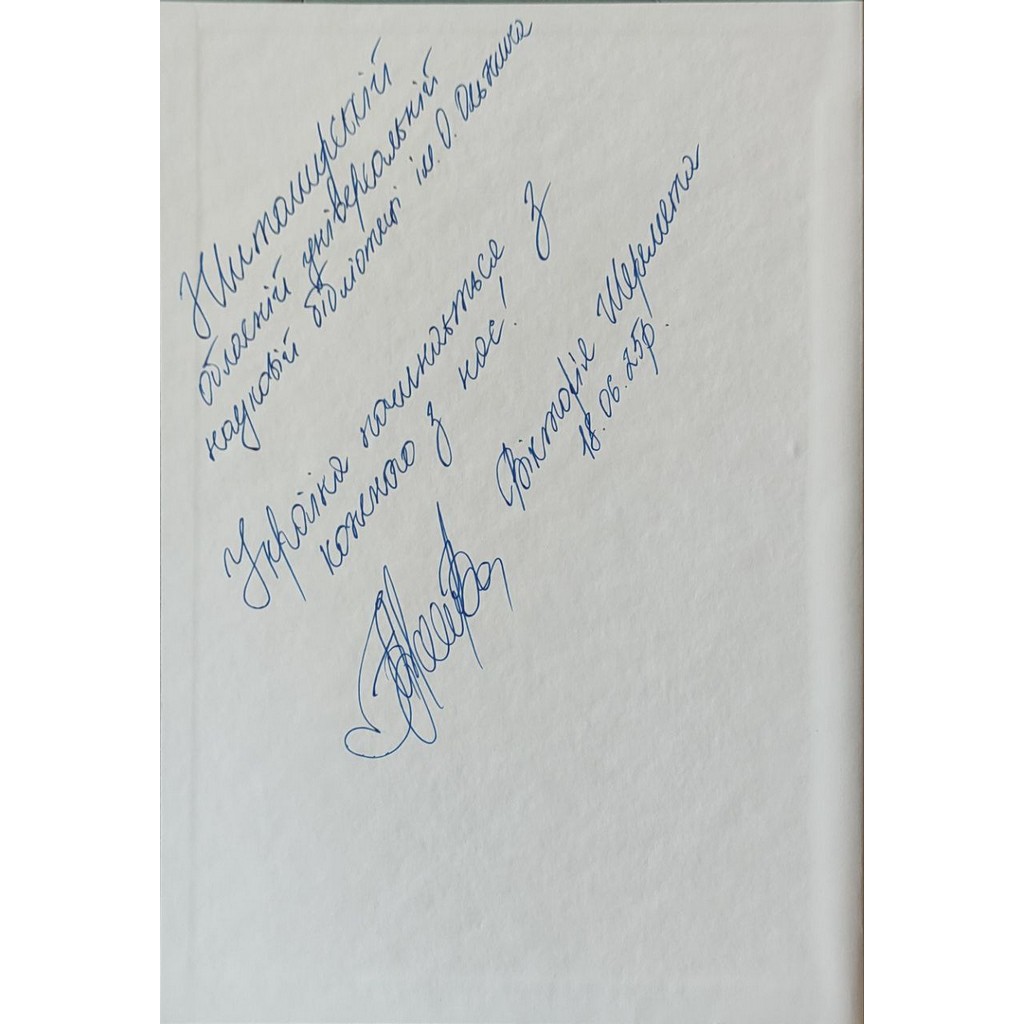 Житомирській
обласній універсальній
науковій бібліотеці ім. О. Ольжича
Україна починається з
кожного з нас!
Вікторія Шеремета
18.06.25р.